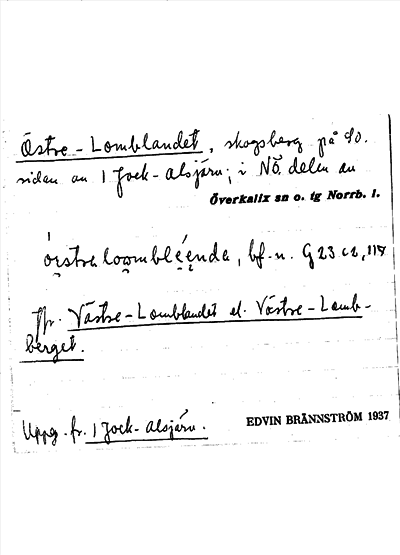 Östre-Lomblandet, skogsberg på SO.
sidan av 1 Jock-alsjärv; i NÖ. delen av
Överkalix sn o. tg Norrb. l.
bf.-n. G 23 c2, 118
Jfr. Västre-Lomblandet el. Västre-Lomb-
berget.
Uppg. fr. 1 Jock-alsjärv.
EDVIN BRÄNNSTRÖM 1937